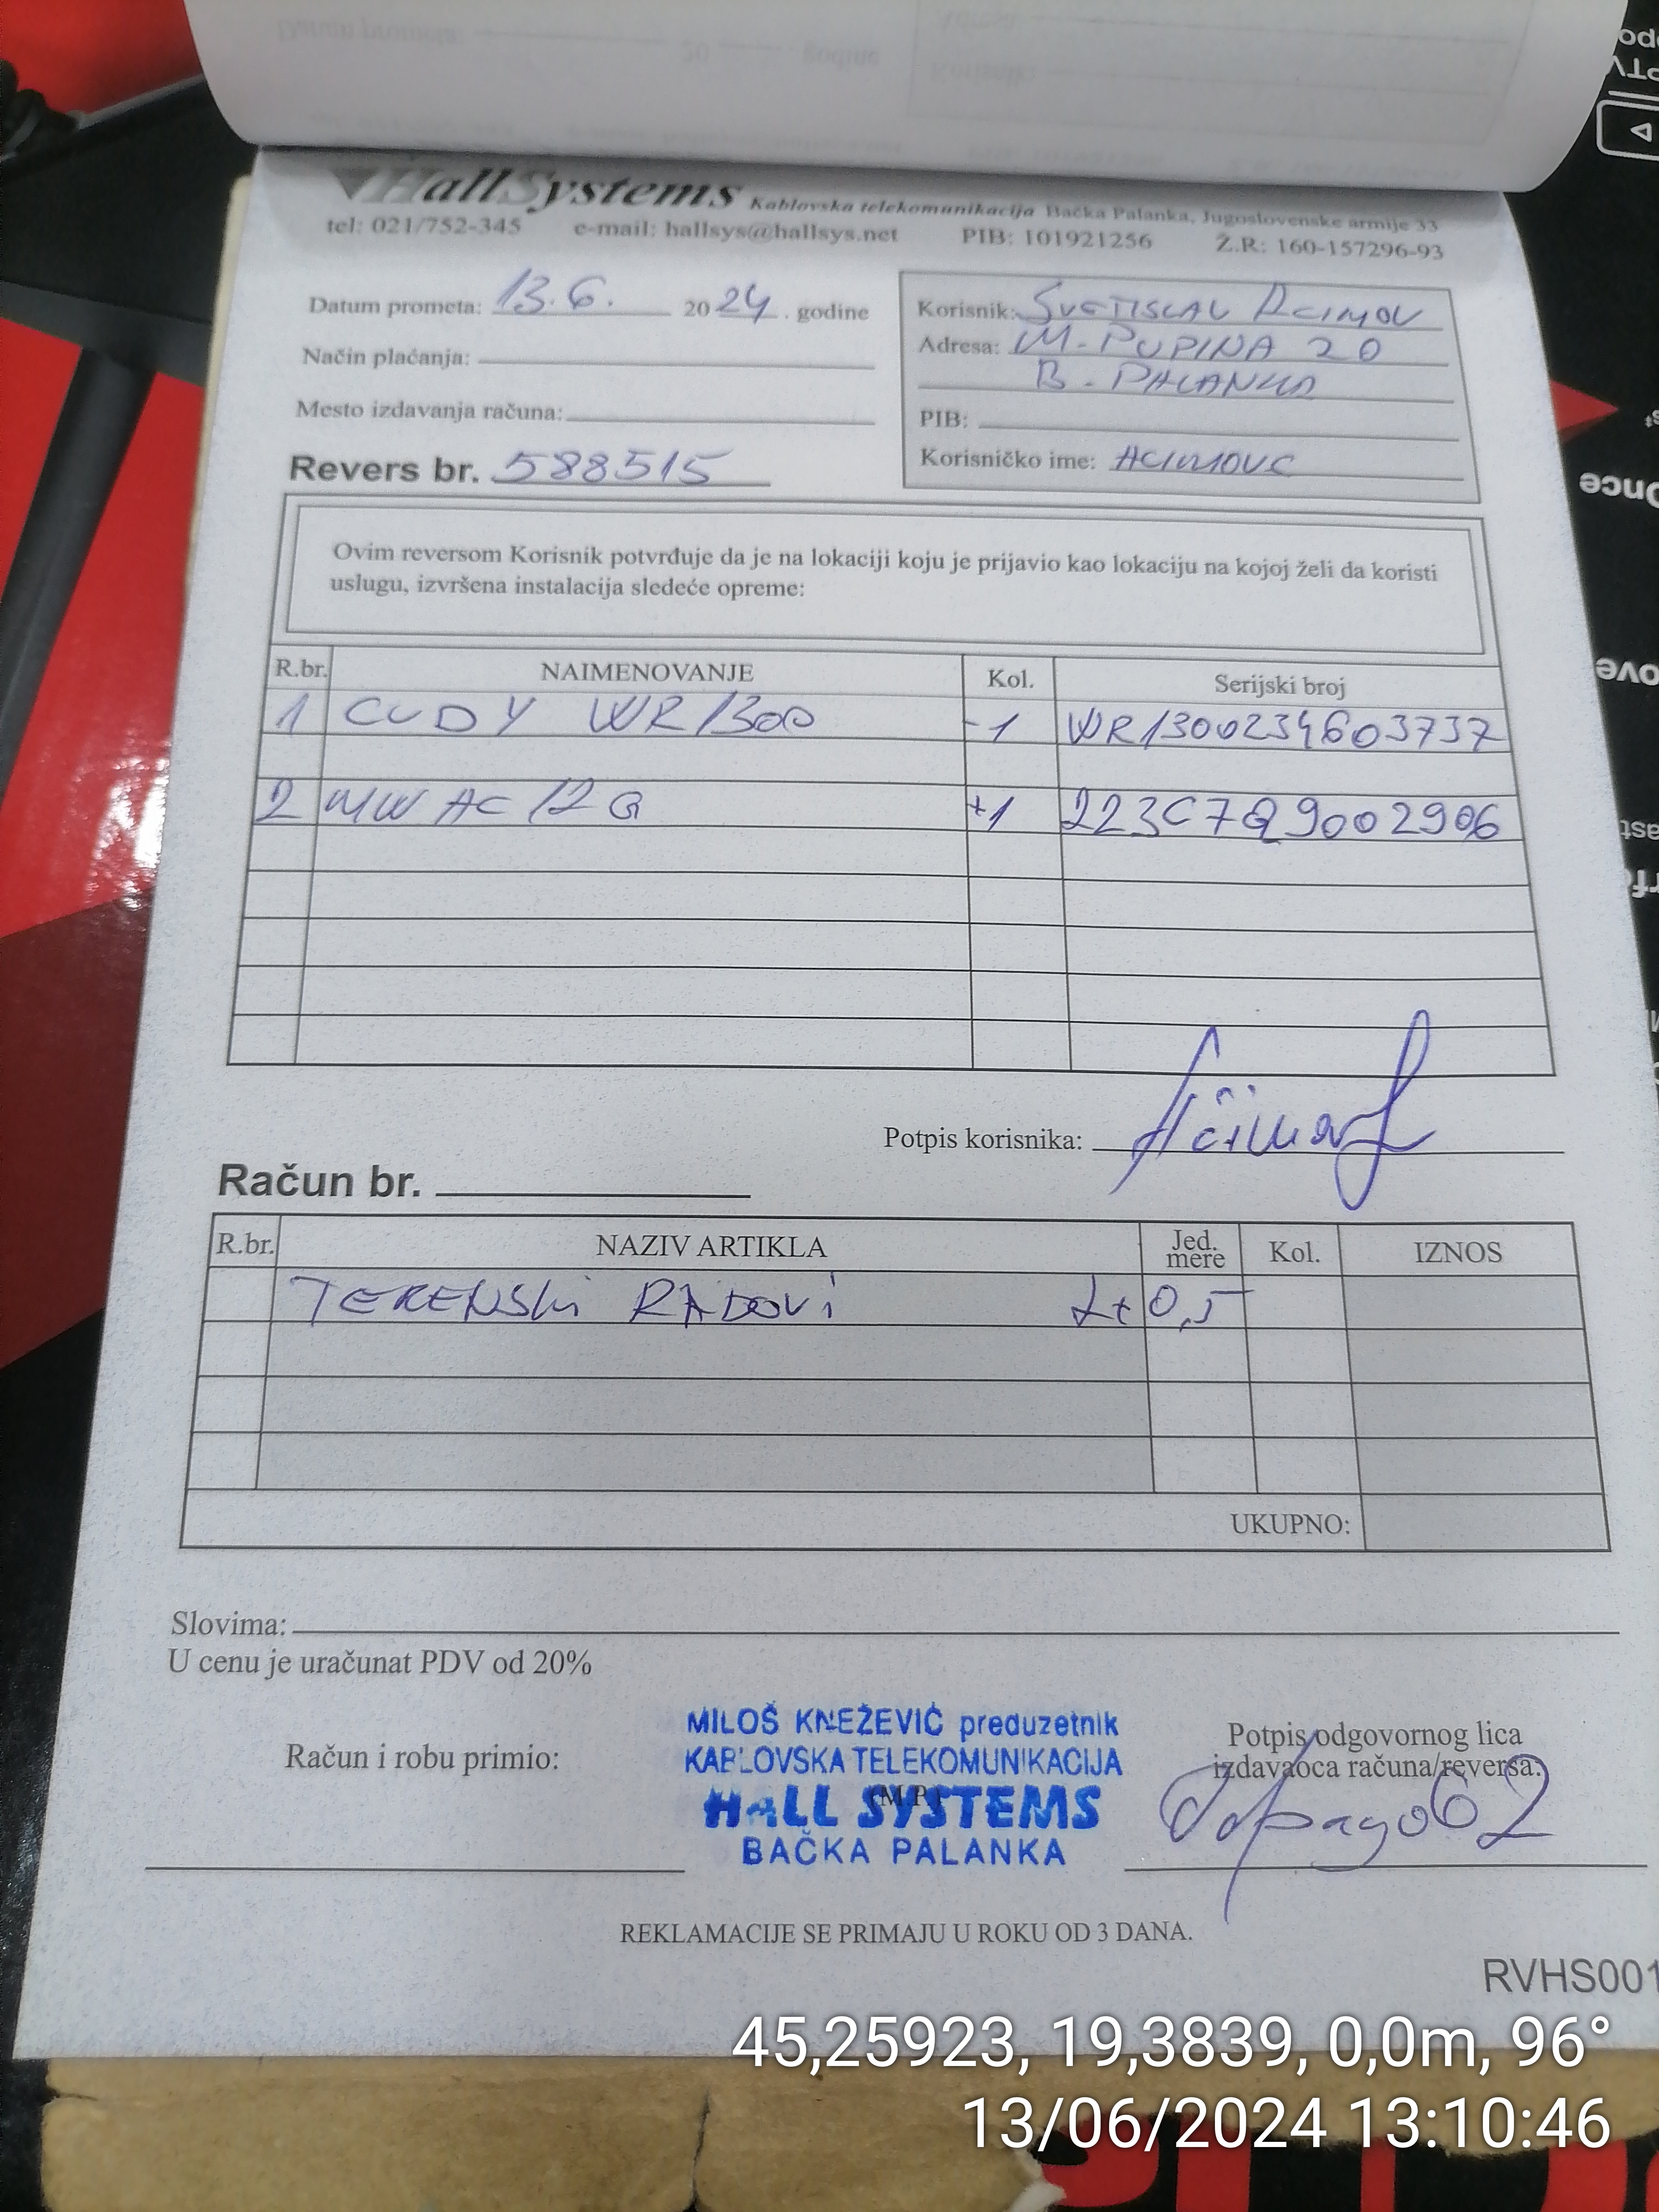 HallSystems Kablovska telekomunikacija Bačka Palanka, Jugoslovenske armije 33
tel: 021/752-345 e-mail: hallsys@hallsys.net PIB: 101921256 Ž.R: 160-157296-93
Datum prometa: 13.6. 2024. godine
Način plaćanja:
Mesto izdavanja računa:
Revers br. 588515
Korisnik: SVETISLAV ACIMOV
Adresa: M. PUPINA 20
B. PALANKA
PIB:
Korisničko ime: ACIMOVC
Ovim reversom Korisnik potvrđuje da je na lokaciji koju je prijavio kao lokaciju na kojoj želi da koristi
uslugu, izvršena instalacija sledeće opreme:
R.br. NAIMENOVANJE Kol. Serijski broj
1 CUDY WR1300 -1 WR1300234603737
2 MW AC12G +1 223C7Q9002906
Potpis korisnika:
Račun br.
R.br. NAZIV ARTIKLA Jed. mere Kol. IZNOS
TERENSKI RADOVI 2x0,5
UKUPNO:
Slovima:
U cenu je uračunat PDV od 20%
Račun i robu primio:
MILOŠ KNEŽEVIĆ preduzetnik
KABLOVSKA TELEKOMUNIKACIJA
(M.P.)
HALL SYSTEMS
BAČKA PALANKA
Potpis odgovornog lica
izdavaoca računa/reversa:
REKLAMACIJE SE PRIMAJU U ROKU OD 3 DANA.
RVHS001
45,25923, 19,3839, 0,0m, 96°
13/06/2024 13:10:46